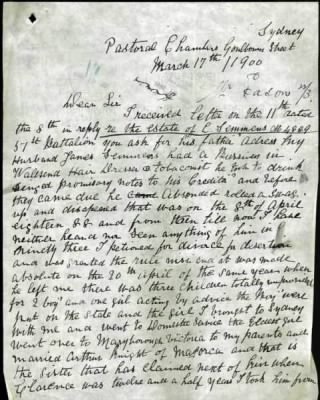 Sydney
Pastoral Chambers Goulbourn Street
March 17th / 1900
Dear Sir
I received letter on the 11th dated
the 8th in reply re the estate of C Simmens No 4889
57st Battalion you ask for his father adress My
Husband James Simmens had a Buisness in
Hair Dresser & Tobaconist he got to drink
promisory notes to his Creadit and before
they came due he Absonded
up and disapeared that was on the 8th of April
eighteen 88 and from then till now I have
neither heard nor seen anything of him in
ninety three I petioned for divorce for desertion
and was granted the rule nisi and it was made
absolute on the 20th april of the same year when
he left one there was three children totally unprovided
for 2 boys and one girl acting by advice the boys were
put on the State and the girl I brought to Sydney
with me and went to Domestic Service the Eldest girl
went over to Maryborough Victoria to my parents and
married Arthur Knight of Majorca and that is
the sister that has claimed next of kin when
Clarence was twelve and a half years I took him from